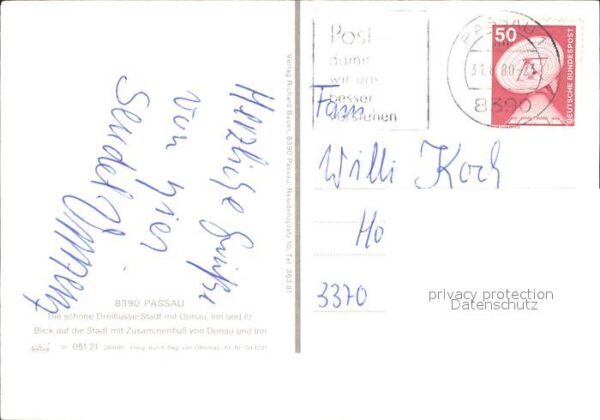 Herzliche Grüße
von hier
sendet
8390 PASSAU
Die schöne Dreiflüsse-Stadt mit Donau, Inn und Ilz
Blick auf die Stadt mit Zusammenfluß von Donau und Inn
051.21
Verlag Richard Bauer, 8390 Passau, Residenzplatz 10, Tel. 363 81
Post
damit
wir uns
besser
verstehen
PASSAU
8390
50
DEUTSCHE BUNDESPOST
Fam
Willi Koch
Ho
3370
privacy protection
Datenschutz